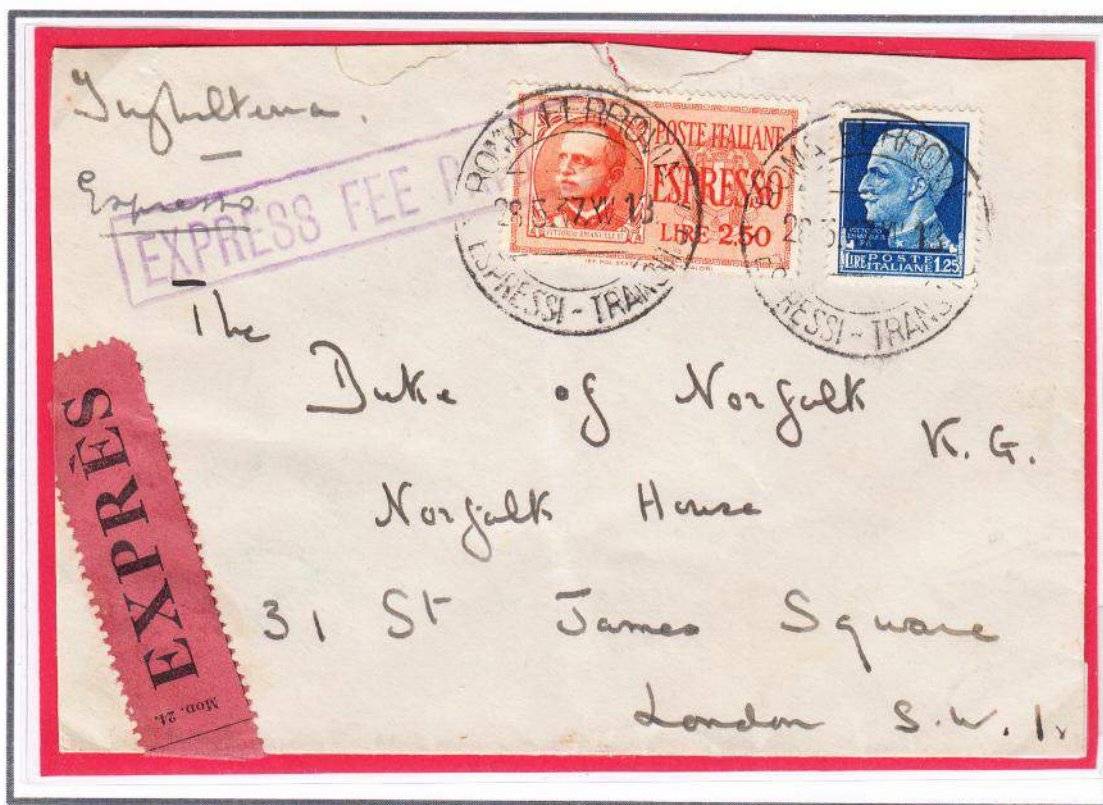 Inghilterra.
Espresso
EXPRESS FEE
ROMA FERROVIA
28.5.37.XV 18
ESPRESSI - TRANSITI
POSTE ITALIANE
ESPRESSO
LIRE 2,50
VITTORIO EMANUELE III
ROMA FERROVIA
ESPRESSI - TRANSITI
LIRE POSTE ITALIANE 1.25
The
Duke of Norfolk
K. G.
Norfolk House
31 St James Square
London S. W. 1.
EXPRÈS
Mod. 24.